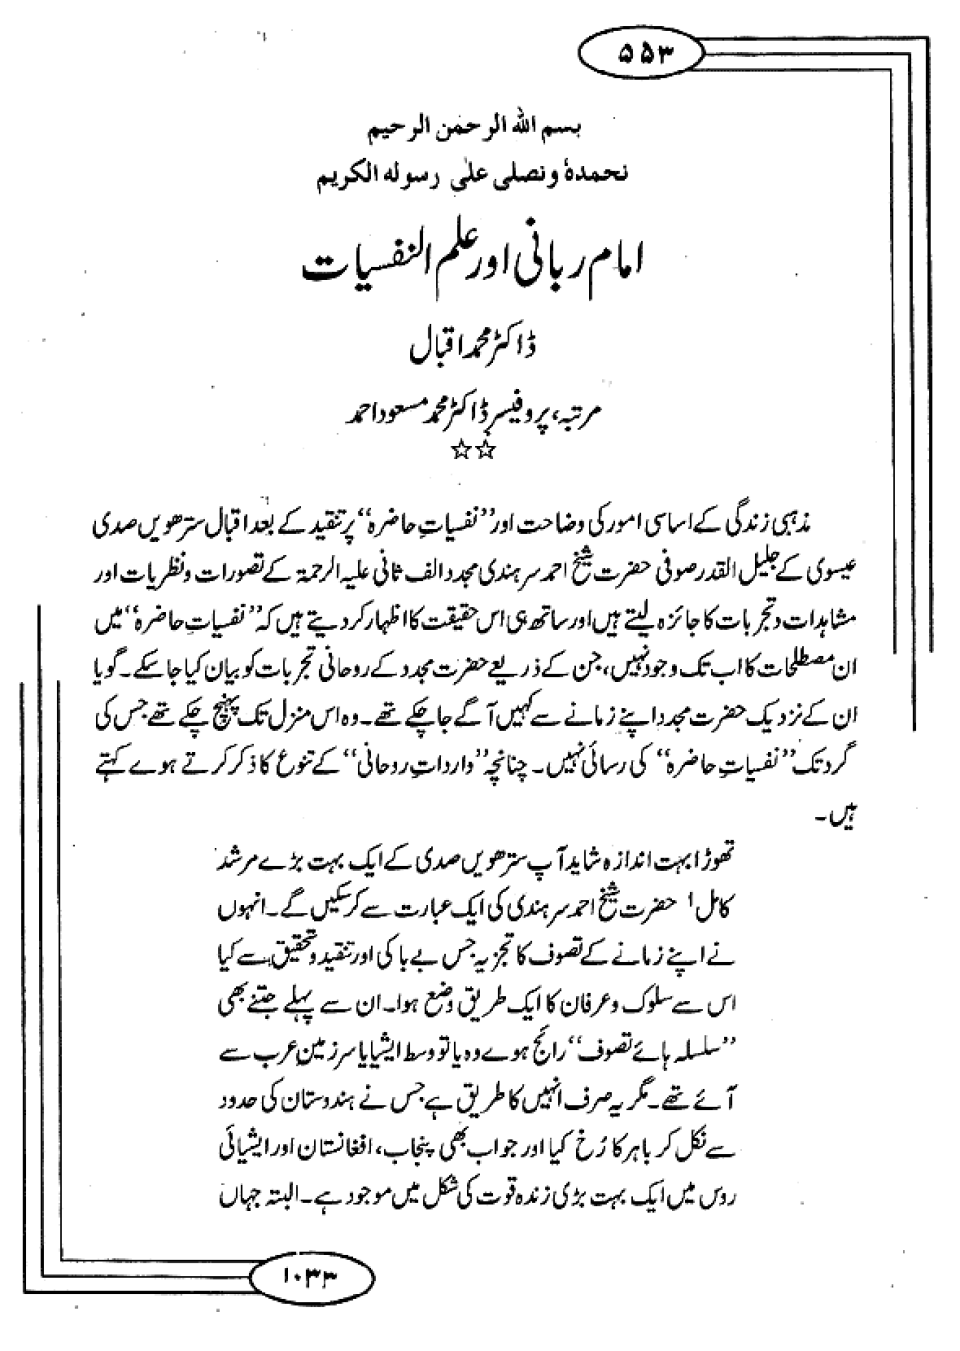 ۵۵۳
بسم الله الرحمن الرحیم
نحمدهٗ ونصلی علیٰ رسوله الکریم
امام ربانی اور علم النفسیات
ڈاکٹر محمد اقبال
مرتبہ، پروفیسر ڈاکٹر محمد مسعود احمد
☆☆
مذہبی زندگی کے اساسی امور کی وضاحت اور ”نفسیاتِ حاضرہ“ پر تنقید کے بعد اقبال سترھویں صدی
عیسوی کے جلیل القدر صوفی حضرت شیخ احمد سرہندی مجدد الف ثانی علیہ الرحمۃ کے تصورات و نظریات اور
مشاہدات و تجربات کا جائزہ لیتے ہیں اور ساتھ ہی اس حقیقت کا اظہار کر دیتے ہیں کہ ”نفسیاتِ حاضرہ“ میں
ان مصطلحات کا اب تک وجود نہیں، جن کے ذریعے حضرت مجدد کے روحانی تجربات کو بیان کیا جا سکے۔ گویا
ان کے نزدیک حضرت مجدد اپنے زمانے سے کہیں آگے جا چکے تھے۔ وہ اس منزل تک پہنچ چکے تھے جس کی
گرد تک ”نفسیاتِ حاضرہ“ کی رسائی نہیں۔ چنانچہ ”وارداتِ روحانی“ کے تنوع کا ذکر کرتے ہوے کہتے
ہیں۔
تھوڑا بہت اندازہ شاید آپ سترھویں صدی کے ایک بہت بڑے مرشد
کامل ۱ حضرت شیخ احمد سرہندی کی ایک عبارت سے کر سکیں گے۔ انہوں
نے اپنے زمانے کے تصوف کا تجزیہ جس بے باکی اور تنقید و تحقیق سے کیا
اس سے سلوک و عرفان کا ایک طریق وضع ہوا۔ ان سے پہلے جتنے بھی
”سلسلہ ہائے تصوف“ رائج ہوے وہ یا تو وسط ایشیا یا سرزمین عرب سے
آئے تھے۔ مگر یہ صرف انہیں کا طریق ہے جس نے ہندوستان کی حدود
سے نکل کر باہر کا رُخ کیا اور جو اب بھی پنجاب، افغانستان اور ایشیائی
روس میں ایک بہت بڑی زندہ قوت کی شکل میں موجود ہے۔ البتہ جہاں
۱۰۳۳